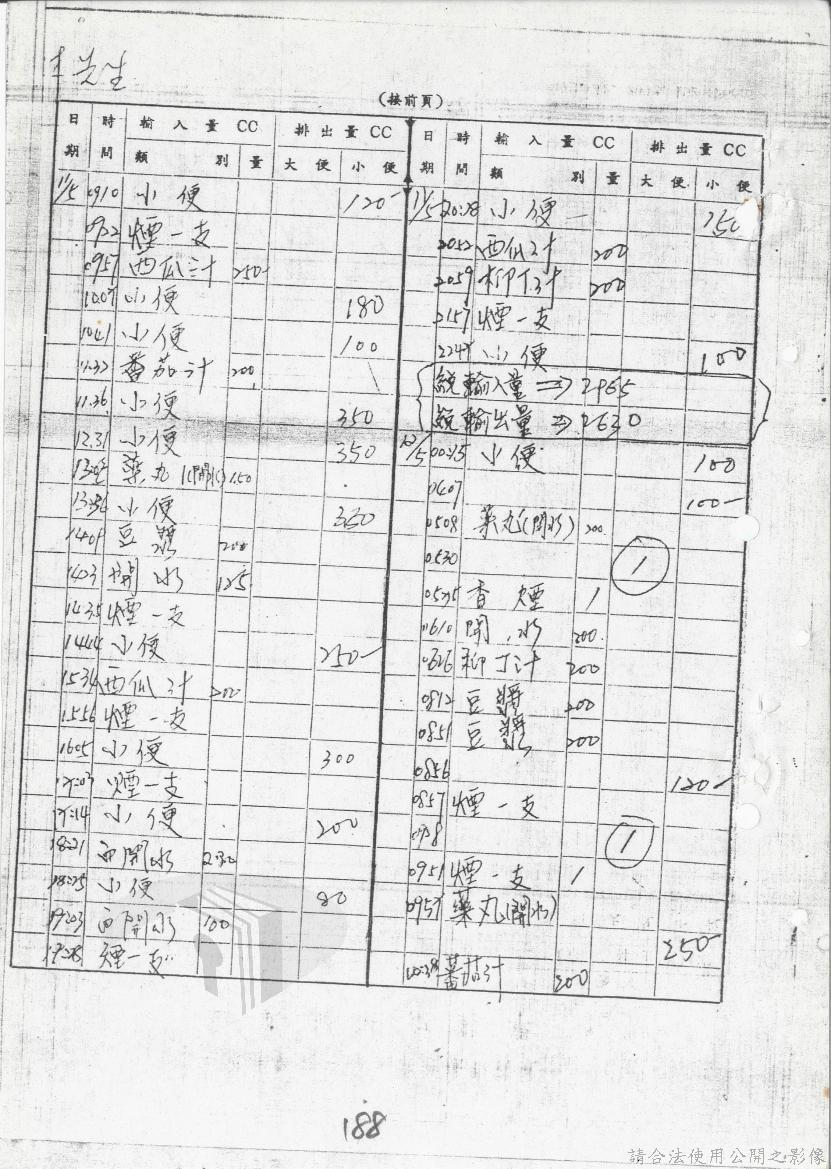 先生
(接前頁)
日期 時間 輸入量CC 類別 量 排出量CC 大便 小便
11/5 0910 小便 120-
0922 煙一支
0957 西瓜汁 250-
1007 小便 180
1041 小便 100
11:32 番茄汁 200
11:36 小便 350
12:31 小便 350
藥丸(開水) 150
小便
1409 豆漿 200
1423 開水 125
1435 煙一支
1444 小便 250-
1534 西瓜汁 200
1556 煙一支
1605 小便 300
17:03 煙一支
17:14 小便 200
18:21 白開水
18:25 小便 80
19:03 白開水 100
煙一支
日期 時間 輸入量CC 類別 量 排出量CC 大便 小便
11/5 20:18 小便 150
2052 西瓜汁 200
2059 柳丁汁 200
2157 煙一支
小便 100
統輸入量⇒2965
統輸出量⇒2630
00:15 小便 100
0407 100-
0508 藥丸(開水) 200
0530 1
香煙 1
0610 開水 200
0626 柳丁汁 200
0812 豆漿 200
0851 豆漿 200
0856 120-
0857 煙一支
1
0951 煙一支 1
0957 藥丸(開水)
250
10:38 蕃茄汁 200
188
請合法使用公開之影像